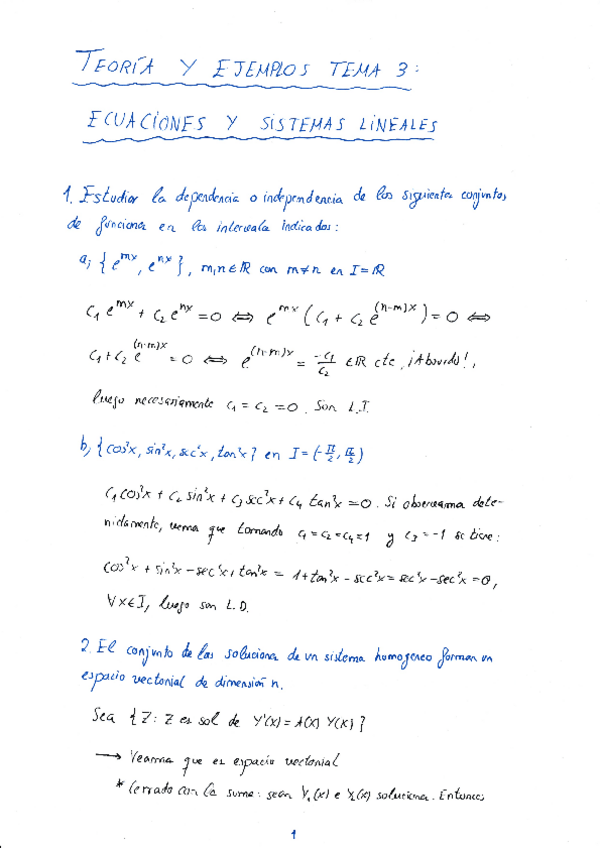 TEORÍA Y EJEMPLOS TEMA 3:
ECUACIONES Y SISTEMAS LINEALES
1. Estudiar la dependencia o independencia de los siguientes conjuntos
de funciones en los intervalos indicados:
a) { e^{mx}, e^{nx} }, m,n ∈ ℝ con m≠n en I=ℝ
C₁e^{mx} + C₂e^{nx} = 0 ⇔ e^{mx}(C₁ + C₂e^{(n-m)x}) = 0 ⇔
C₁ + C₂e^{(n-m)x} = 0 ⇔ e^{(n-m)x} = -C₁/C₂ ∈ ℝ cte, ¡Absurdo!,
luego necesariamente C₁ = C₂ = 0. Son L.I.
b) { cos²x, sin²x, sec²x, tan²x } en I = (-π/2, π/2)
C₁cos²x + C₂ sin²x + C₃ sec²x + C₄ tan²x = 0. Si observamos dete-
nidamente, vemos que tomando C₁ = C₂ = C₄ = 1 y C₃ = -1 se tiene:
cos²x + sin²x - sec²x + tan²x = 1 + tan²x - sec²x = sec²x - sec²x = 0,
∀x∈I, luego son L.D.
2. El conjunto de las soluciones de un sistema homogéneo forman un
espacio vectorial de dimensión n.
Sea { Z : Z es sol de Y'(x) = A(x) Y(x) }
→ Veamos que es espacio vectorial
* Cerrado con la suma: sean Y₁(x) e Y₂(x) soluciones. Entonces
1